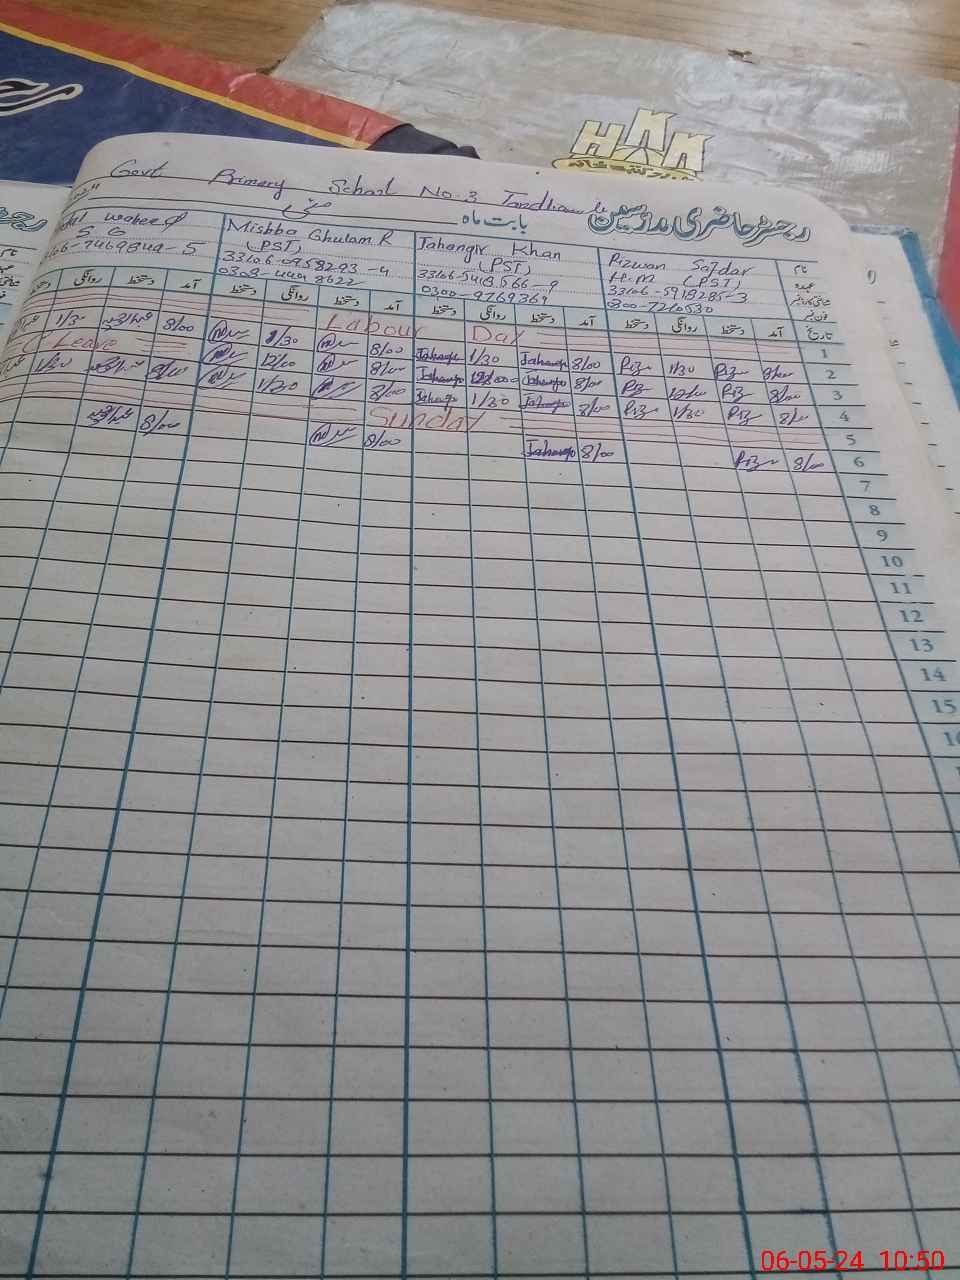 HKK
Govt Primary School No.3
رجسٹر حاضری مدرسین
بابت ماہ مئی
نام
Rizwan Safdar
Jahangir Khan
Mishba Ghulam R
H.M (PST)
(PST)
(PST)
S G
33106-5918285-3
33106-5418566-9
33106-0958293-4
7469849-5
0300-7210530
0300-9769369
0309-44498622
تاریخ
آمد دستخط روانگی دستخط
آمد دستخط روانگی دستخط
آمد دستخط روانگی دستخط
آمد دستخط روانگی
1 Labour Day
2 8/00 Riz 1/30 Riz 8/00 Jahangir 1/30 Jahangir 8/00 1/30 8/00 1/30
3 8/00 Riz 12/00 Riz 8/00 Jahangir 12/00 Jahangir 8/00 12/00 C Leave
4 8/00 Riz 1/30 Riz 8/00 Jahangir 1/30 Jahangir 8/00 1/30 8/00 1/30
5 Sunday
6 8/00 Riz 8/00 Jahangir 8/00 8/00
7
8
9
10
11
12
13
14
15
06-05-24 10:50